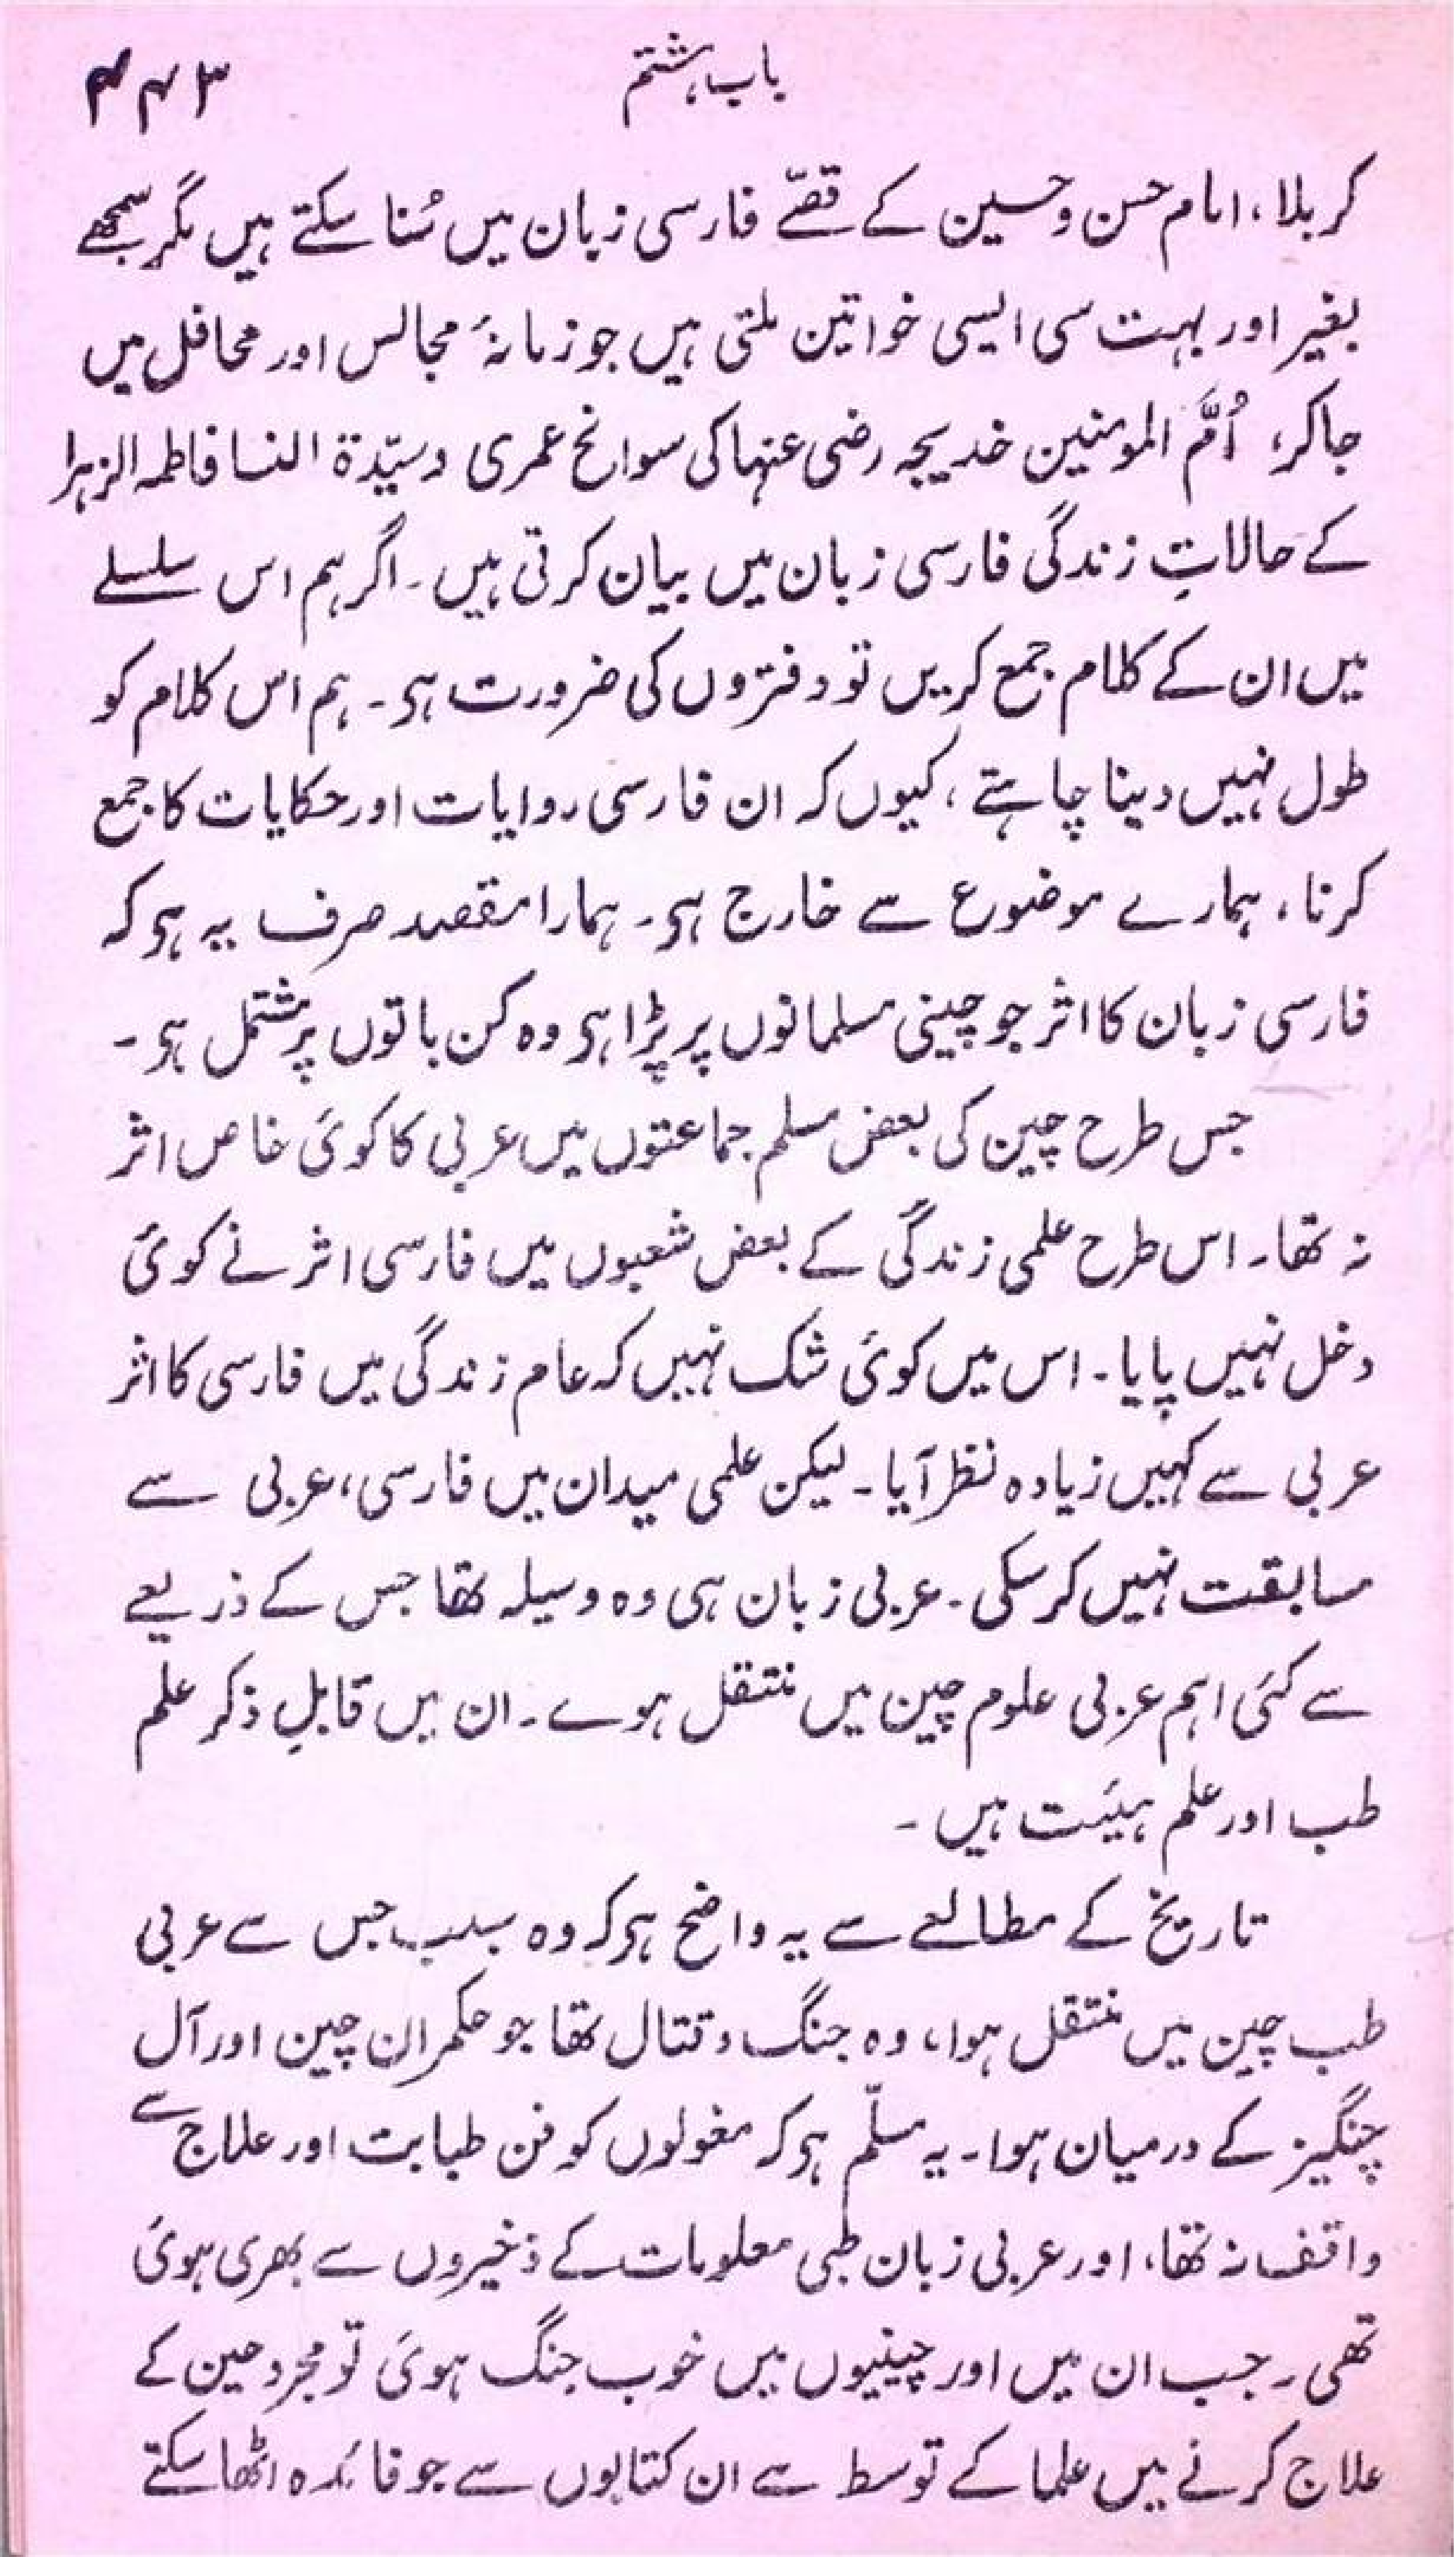 باب ہشتم ۴۴۳
کربلا، امام حسن و حسین کے قصّے فارسی زبان میں سُنا سکتے ہیں مگر سمجھے
بغیر اور بہت سی ایسی خواتین ملتی ہیں جو زمانۂ مجالس اور محافل میں
جاکر، اُمَّ المومنین خدیجہ رضی عنہا کی سوانح عمری و سیّدۃ النسا فاطمہ الزہرا
کے حالاتِ زندگی فارسی زبان میں بیان کرتی ہیں۔ اگر ہم اس سلسلے
میں ان کے کلام جمع کریں تو دفتروں کی ضرورت ہی۔ ہم اس کلام کو
طول نہیں دینا چاہتے، کیوں کہ ان فارسی روایات اور حکایات کا جمع
کرنا، ہمارے موضوع سے خارج ہی۔ ہمارا مقصد صرف یہ ہی کہ
فارسی زبان کا اثر جو چینی مسلمانوں پر پڑا ہی وہ کن باتوں پر مشتمل ہی۔
جس طرح چین کی بعض مسلم جماعتوں میں عربی کا کوئی خاص اثر
نہ تھا۔ اس طرح علمی زندگی کے بعض شعبوں میں فارسی اثر نے کوئی
دخل نہیں پایا۔ اس میں کوئی شک نہیں کہ عام زندگی میں فارسی کا اثر
عربی سے کہیں زیادہ نظر آیا۔ لیکن علمی میدان میں فارسی، عربی سے
مسابقت نہیں کرسکی۔ عربی زبان ہی وہ وسیلہ تھا جس کے ذریعے
سے کئی اہم عربی علوم چین میں منتقل ہوے۔ ان میں قابلِ ذکر علم
طب اور علم ہیئت ہیں۔
تاریخ کے مطالعے سے یہ واضح ہی کہ وہ سبب جس سے عربی
طب چین میں منتقل ہوا، وہ جنگ و قتال تھا جو حکمران چین اور آل
چنگیز کے درمیان ہوا۔ یہ مسلّم ہی کہ مغولوں کو فن طبابت اور علاج سے
واقف نہ تھا، اور عربی زبان طبی معلومات کے ذخیروں سے بھری ہوئی
تھی۔ جب ان میں اور چینیوں میں خوب جنگ ہوئی تو مجروحین کے
علاج کرنے میں علما کے توسط سے ان کتابوں سے جو فائدہ اٹھا سکتے